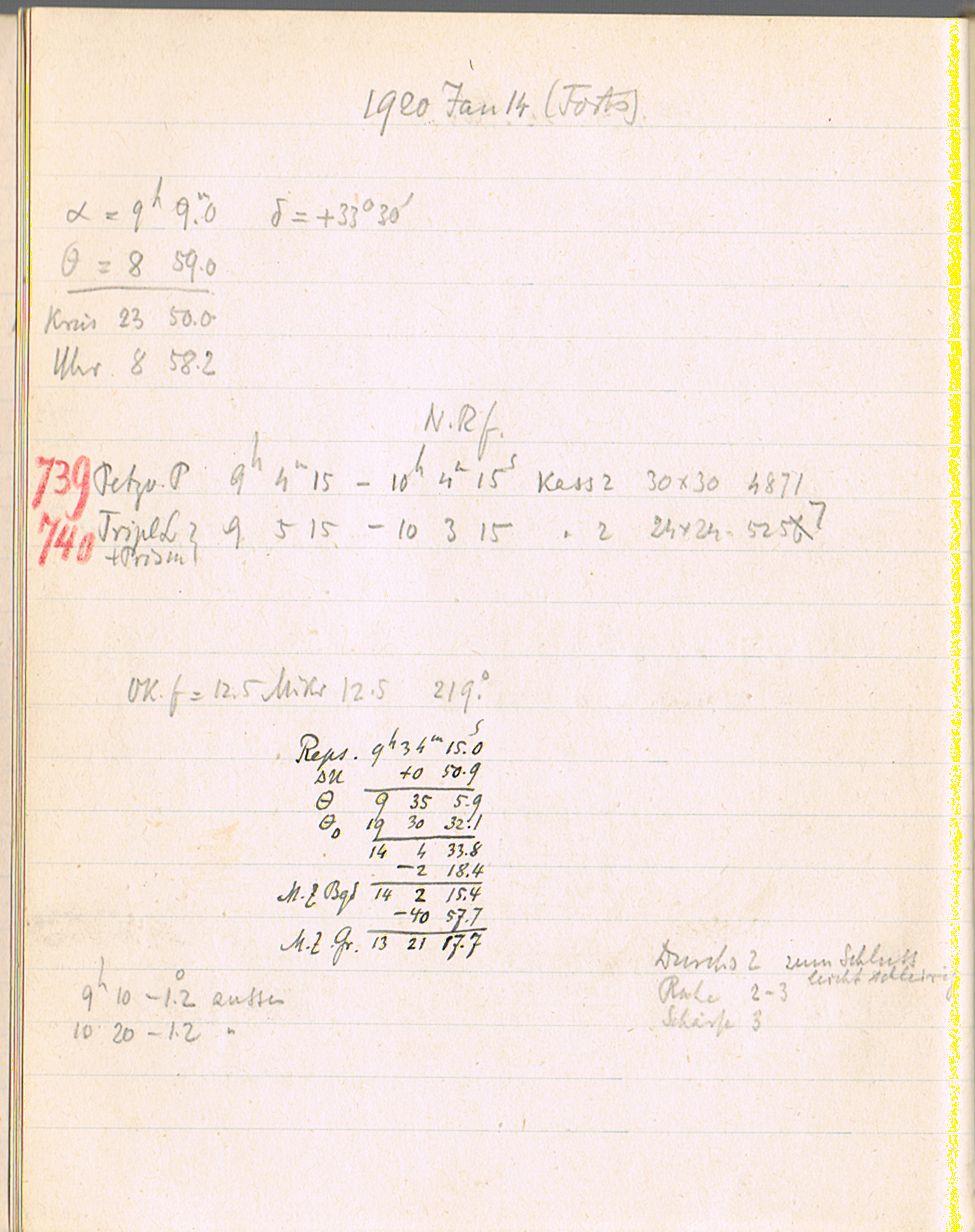 1920 Jan 14 (Forts)
α = 9h 9m.0 δ = +33°30′
θ = 8 59.0
Kreis 23 50.0
Uhr 8 58.2
N.Rf.
739 Petzv. P 9h 4m 15 – 10h 4m 15s Kass 2 30×30 4871
740 Tripl L 2 9 5 15 – 10 3 15 . 2 24×24. 5257
+Prism
OK. f = 12.5 Mikr 12.5 219.°
Reps. 9h 34m 15.s0
Δu +0 50.9
θ 9 35 5.9
θ0 19 30 32.1
14 4 33.8
–2 18.4
M.Z Bgd 14 2 15.4
–40 57.7
M.Z. Gr. 13 21 17.7
9h 10 –1.°2 aussen
10 20 –1.2 "
Durchs 2 zum Schluss
leicht schleirig
Ruhe 2–3
Schärfe 3